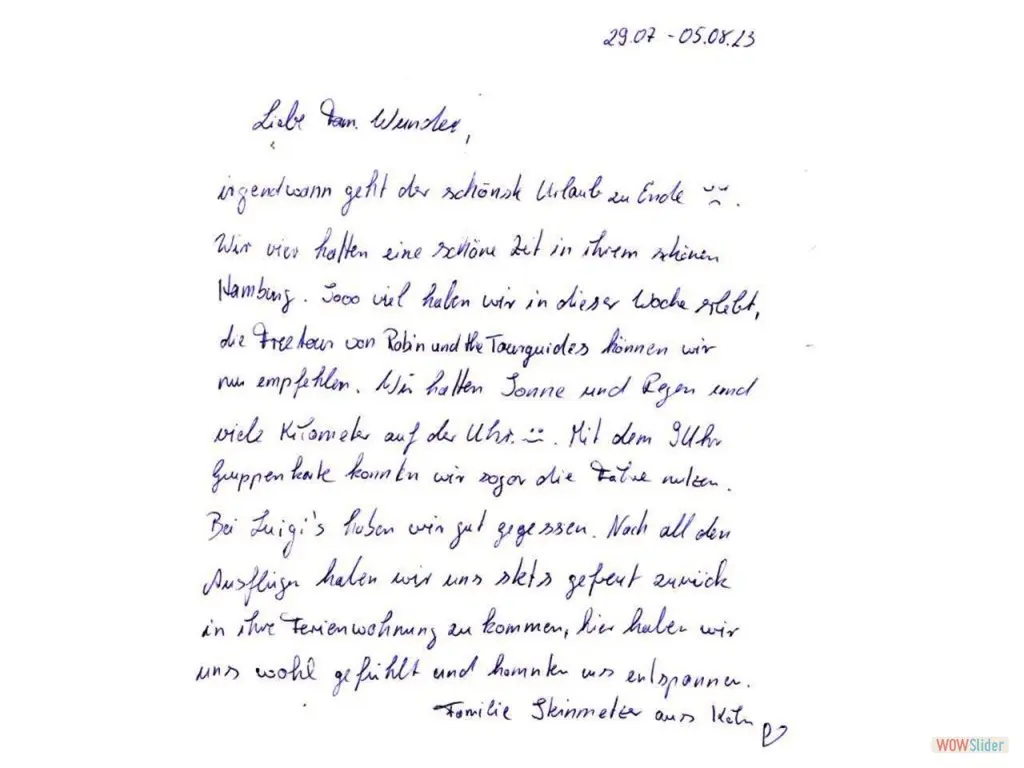 29.07 - 05.08.23
Liebe Fam. Wunder,
irgendwann geht der schönste Urlaub zu Ende ☹.
Wir vier hatten eine schöne Zeit in ihrem schönen
Hamburg. Sooo viel haben wir in dieser Woche erlebt,
die Freetour von Robin und the Tourguides können wir
nur empfehlen. Wir hatten Sonne und Regen und
viele Kilometer auf der Uhr. ☺. Mit dem 9Uhr
Gruppenkarte konnten wir sogar die Fähre nutzen.
Bei Luigi's haben wir gut gegessen. Nach all den
Ausflügen haben wir uns stets gefreut zurück
in ihre Ferienwohnung zu kommen, hier haben wir
uns wohl gefühlt und konnten uns entspannen.
Familie Steinmetzer aus Köln ♡
WOWSlider